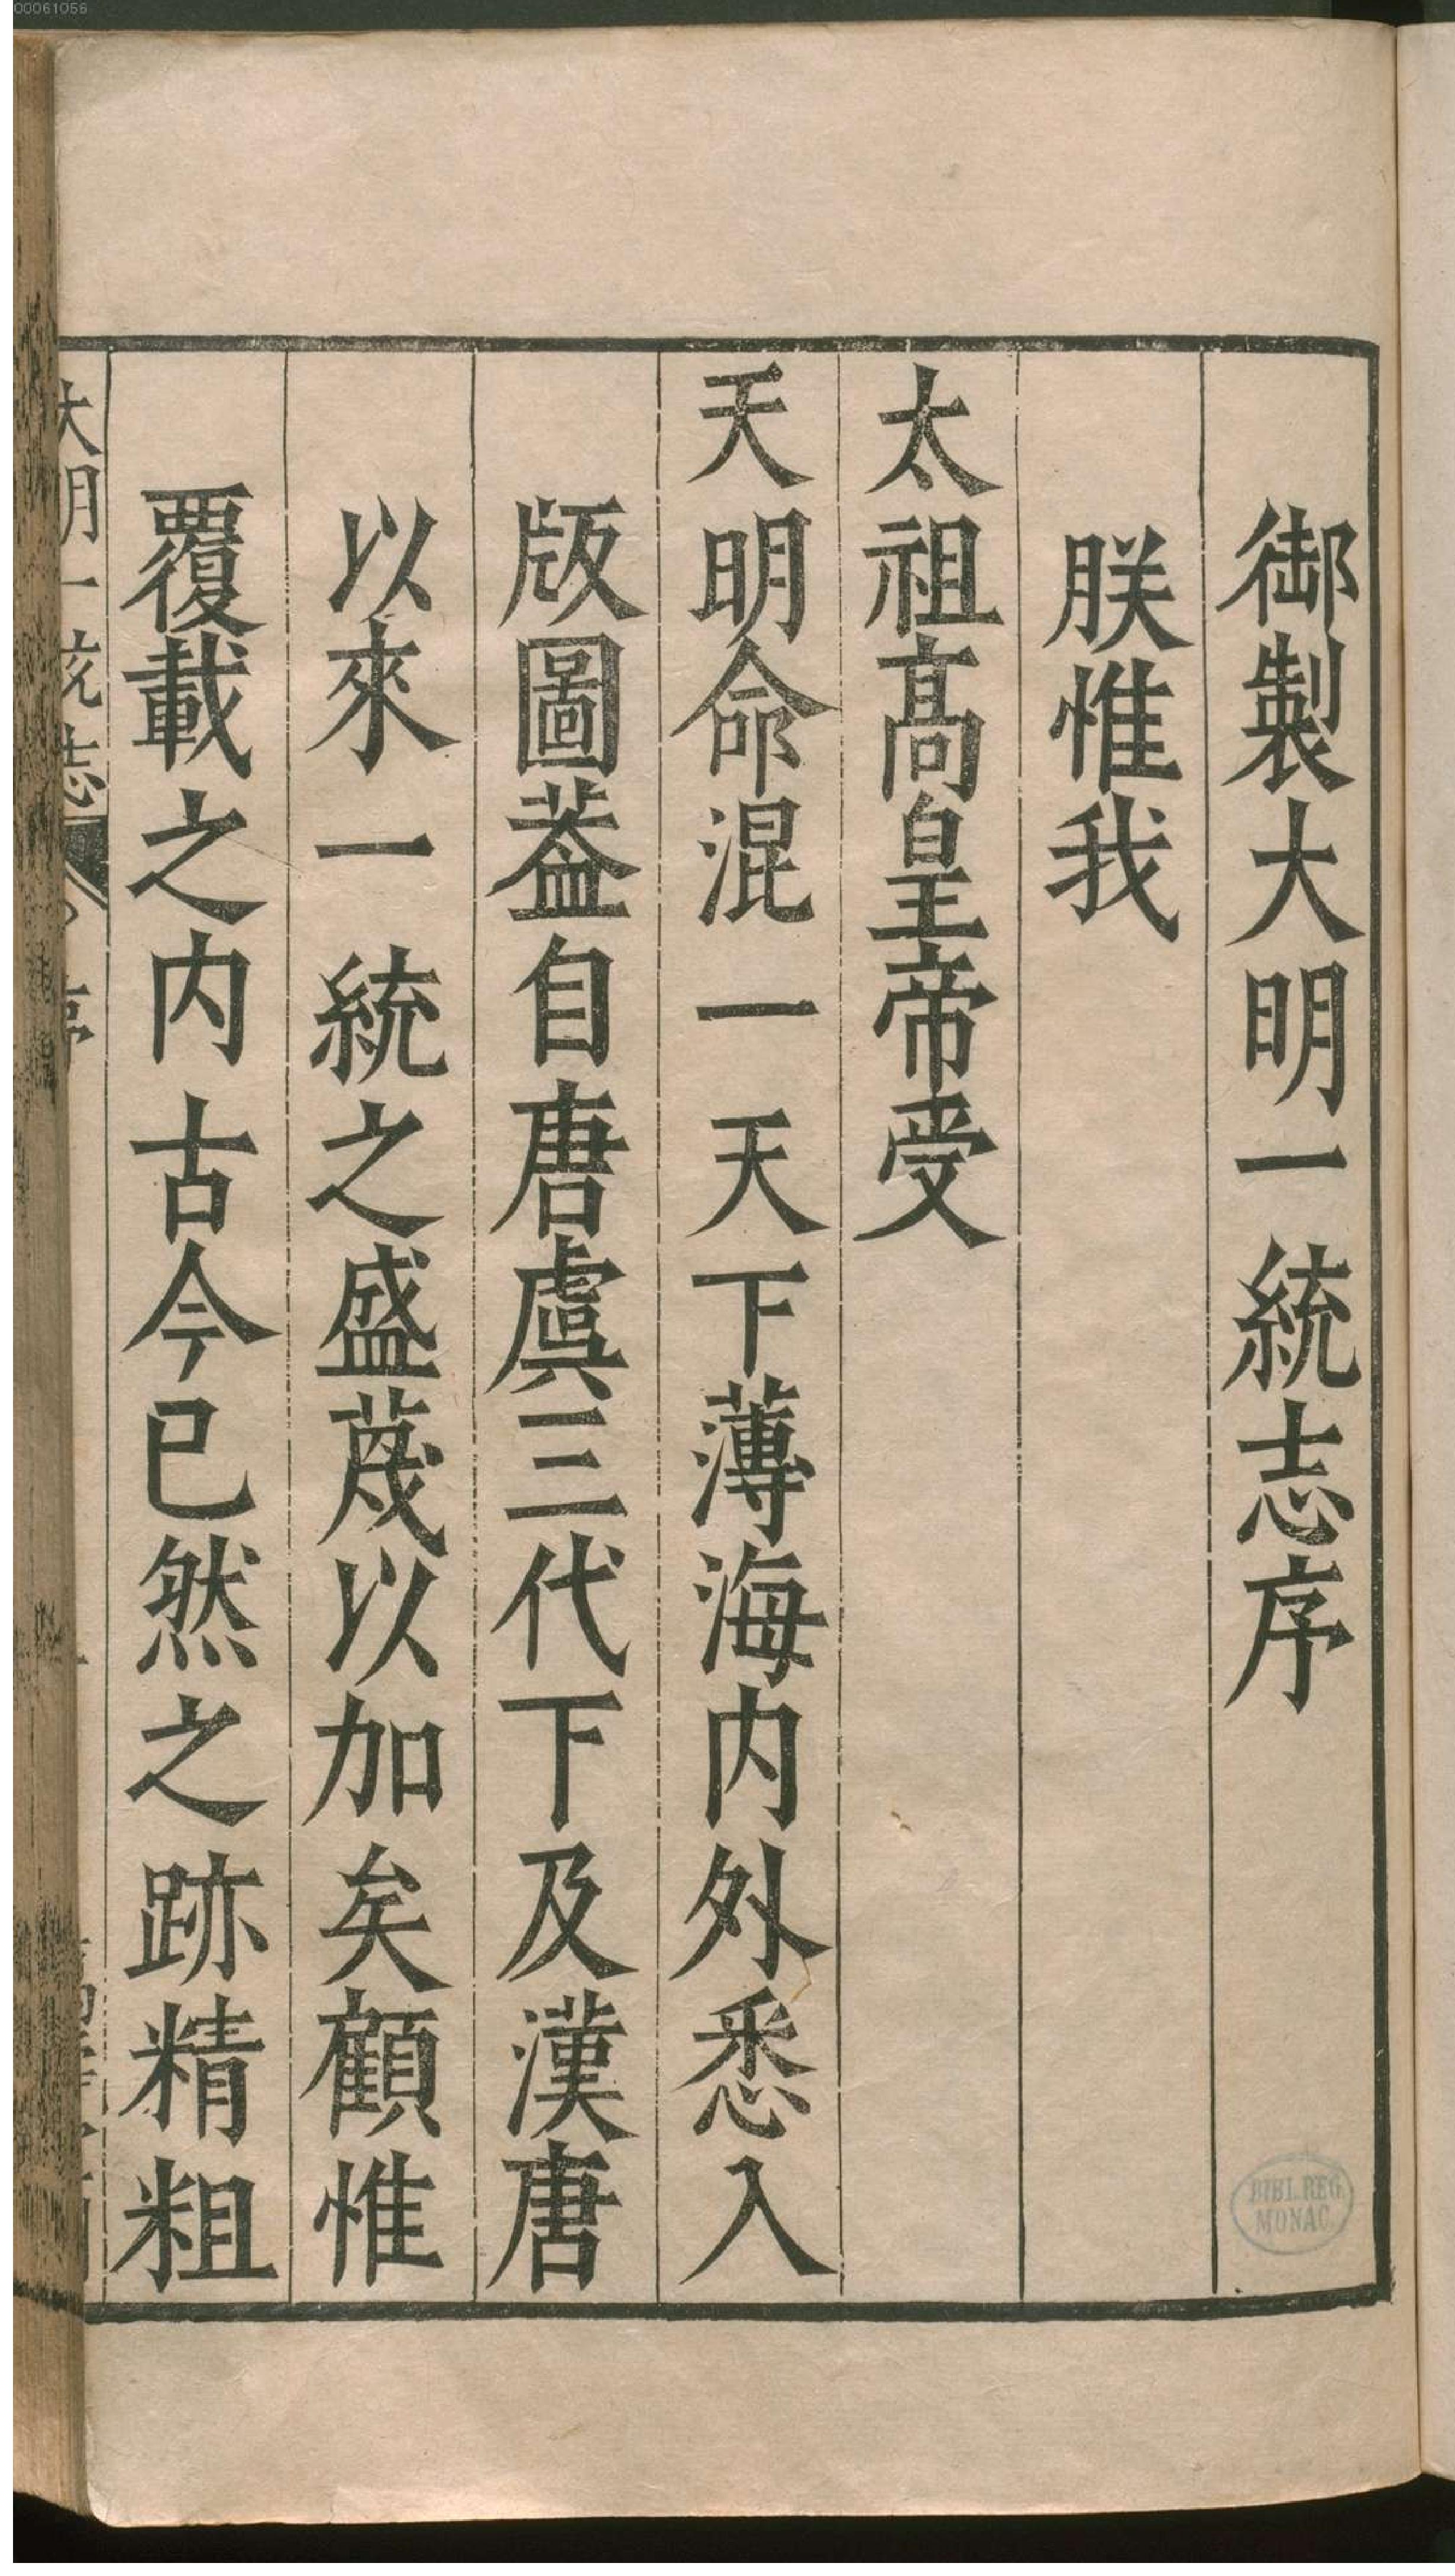 御製大明一統志序
朕惟我
太祖髙皇帝受
天明命混一天下薄海内外悉入
版圖葢自唐虞三代下及漢唐
以來一統之盛蔑以加矣顧惟
覆載之内古今已然之跡精粗
大明一統志
序
BIBL.REG.
MONAC.
00061056